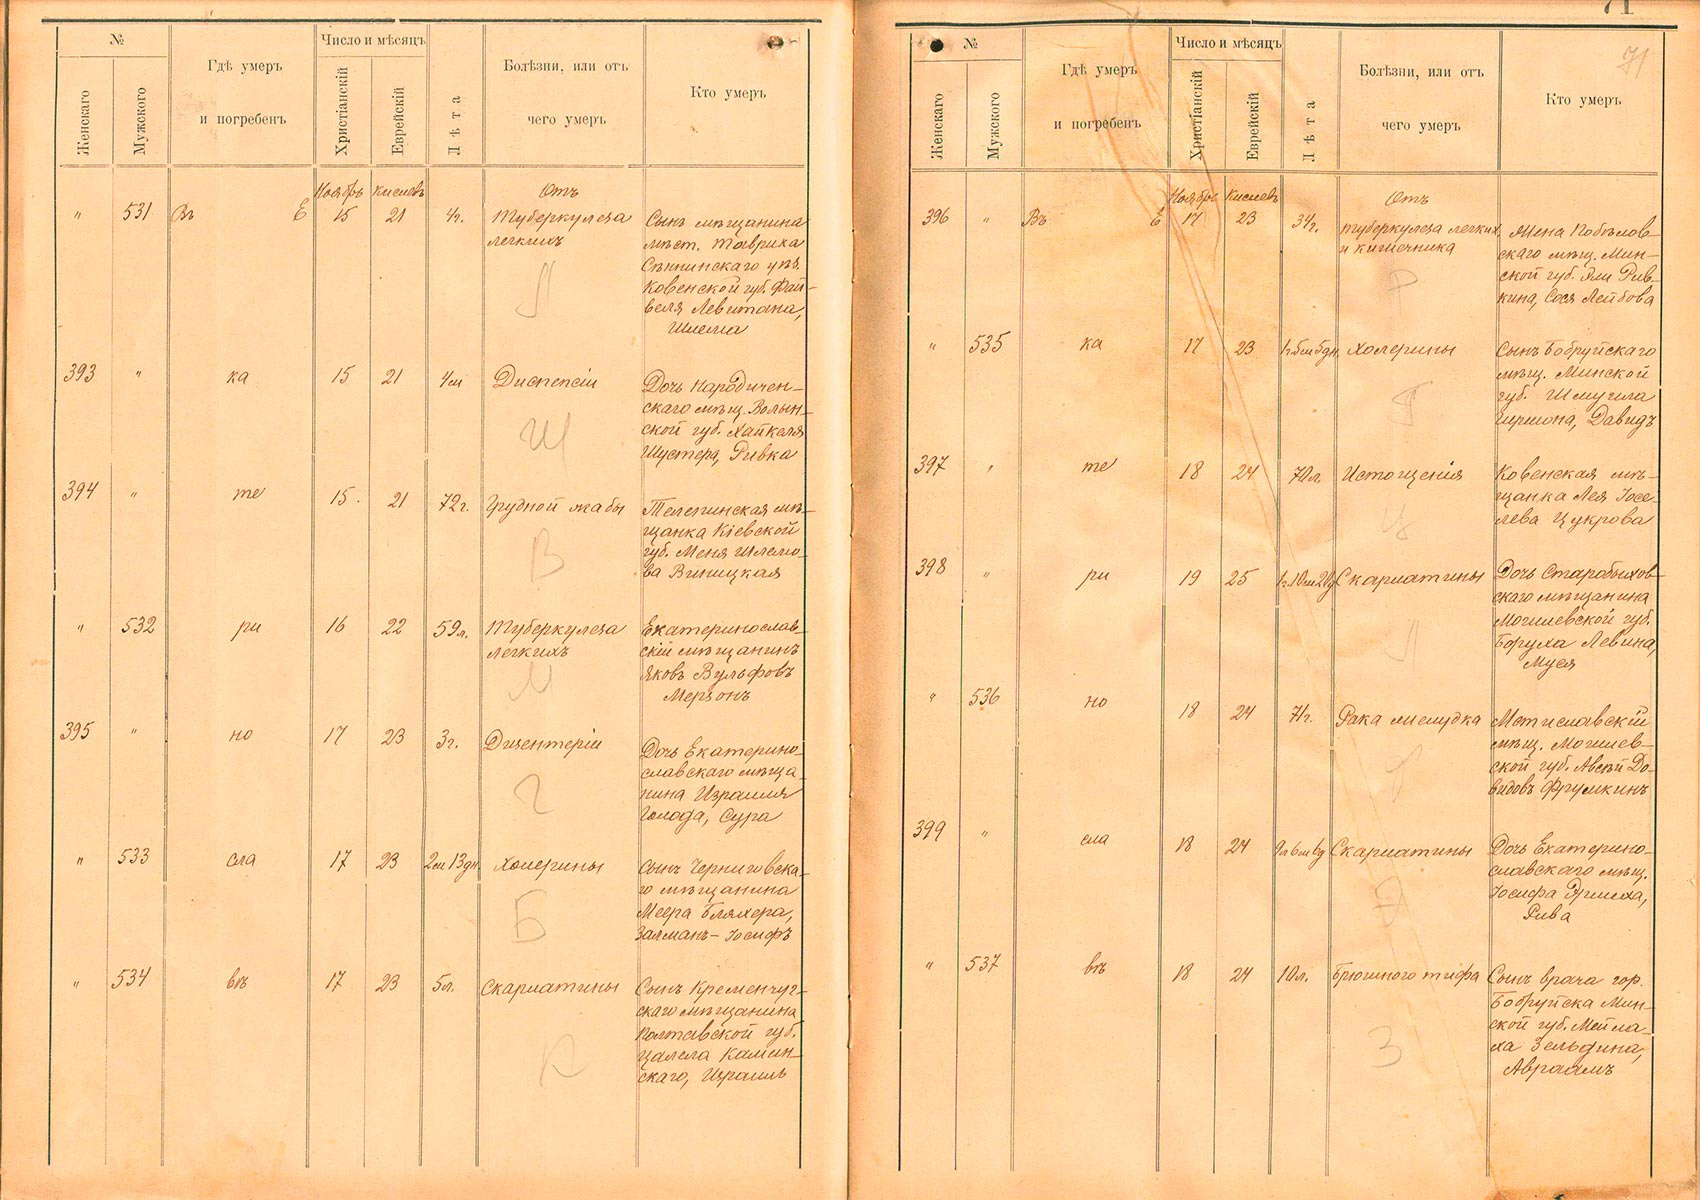 №
Число и мѣсяцъ
Гдѣ умеръ
и погребенъ
Болѣзни, или отъ
чего умеръ
Кто умеръ
Женскаго
Мужского
Христіанскій
Еврейскій
Лѣта
Ноябрь Кислевъ
Отъ
" 531 Въ Е 15 21 4г. Туберкулеза
легкихъ
Сынъ мѣщанина
мѣст.
Ковенской губ. Фай-
веля Левитана,
Шлема
Л
393 " ка 15 21 4м Диспепсіи
Дочь Народичен-
скаго мѣщ. Волын-
ской губ. Хайкеля
Шустера, Ривка
Щ
394 " те 15 21 72г. Грудной жабы
Телепинская мѣ-
щанка Кіевской
губ. Меня Шлемо-
ва Виницкая
В
" 532 ри 16 22 59л. Туберкулеза
легкихъ
Екатеринослав-
скій мѣщанинъ
Яковъ Вульфовъ
Мерзонъ
М
395 " но 17 23 3г. Дизентеріи
Дочь Екатерино-
славскаго мѣща-
нина Израиля
Голода, Сура
Г
" 533 сла 17 23 2м 13дн. Холерины
Сынъ Черниговска-
го мѣщанина
Меера Бляхера,
Залманъ-Іосифъ
Б
" 534 вѣ 17 23 5л. Скарлатины
Сынъ Кременчуг-
скаго мѣщанина
Полтавской губ.
Цалела Камин-
скаго, Израиль
К
71
71
№
Число и мѣсяцъ
Гдѣ умеръ
и погребенъ
Болѣзни, или отъ
чего умеръ
Кто умеръ
Женскаго
Мужского
Христіанскій
Еврейскій
Лѣта
Ноябрь Кислевъ
Отъ
396 " Въ Е 17 23 34г. Туберкулеза легкихъ
и кишечника
Жена Кобылов-
скаго мѣщ. Мин-
ской губ. Эли Рив-
кина, Сося Лейбова
Р
" 535 ка 17 23 1г.5м5дн. Холерины
Сынъ Бобруйскаго
мѣщ. Минской
губ. Шмуила
Давидъ
397 " те 18 24 70л. Истощенія
Ковенская мѣ-
щанка Лея Іосе-
лева Цукрова
Ц
398 " ри 19 25 1г.10м20д Скарлатины
Дочь Старобыхов-
скаго мѣщанина
Могилевской губ.
Боруха Левина,
Муся
Л
" 536 но 18 24 71г. Рака желудка
Мстиславскій
мѣщ. Могилев-
ской губ. Авсѣй До-
видовъ Фрумкинъ
Ф
399 " сла 18 24 Скарлатины
Дочь Екатерино-
славскаго мѣщ.
Іосифа Эрлиха,
Рива
Э
" 537 вѣ 18 24 10л. Брюшного тифа
Сынъ врача гор.
Бобруйска Мин-
ской губ. Мейла-
ха Зельдина,
Авраамъ
З